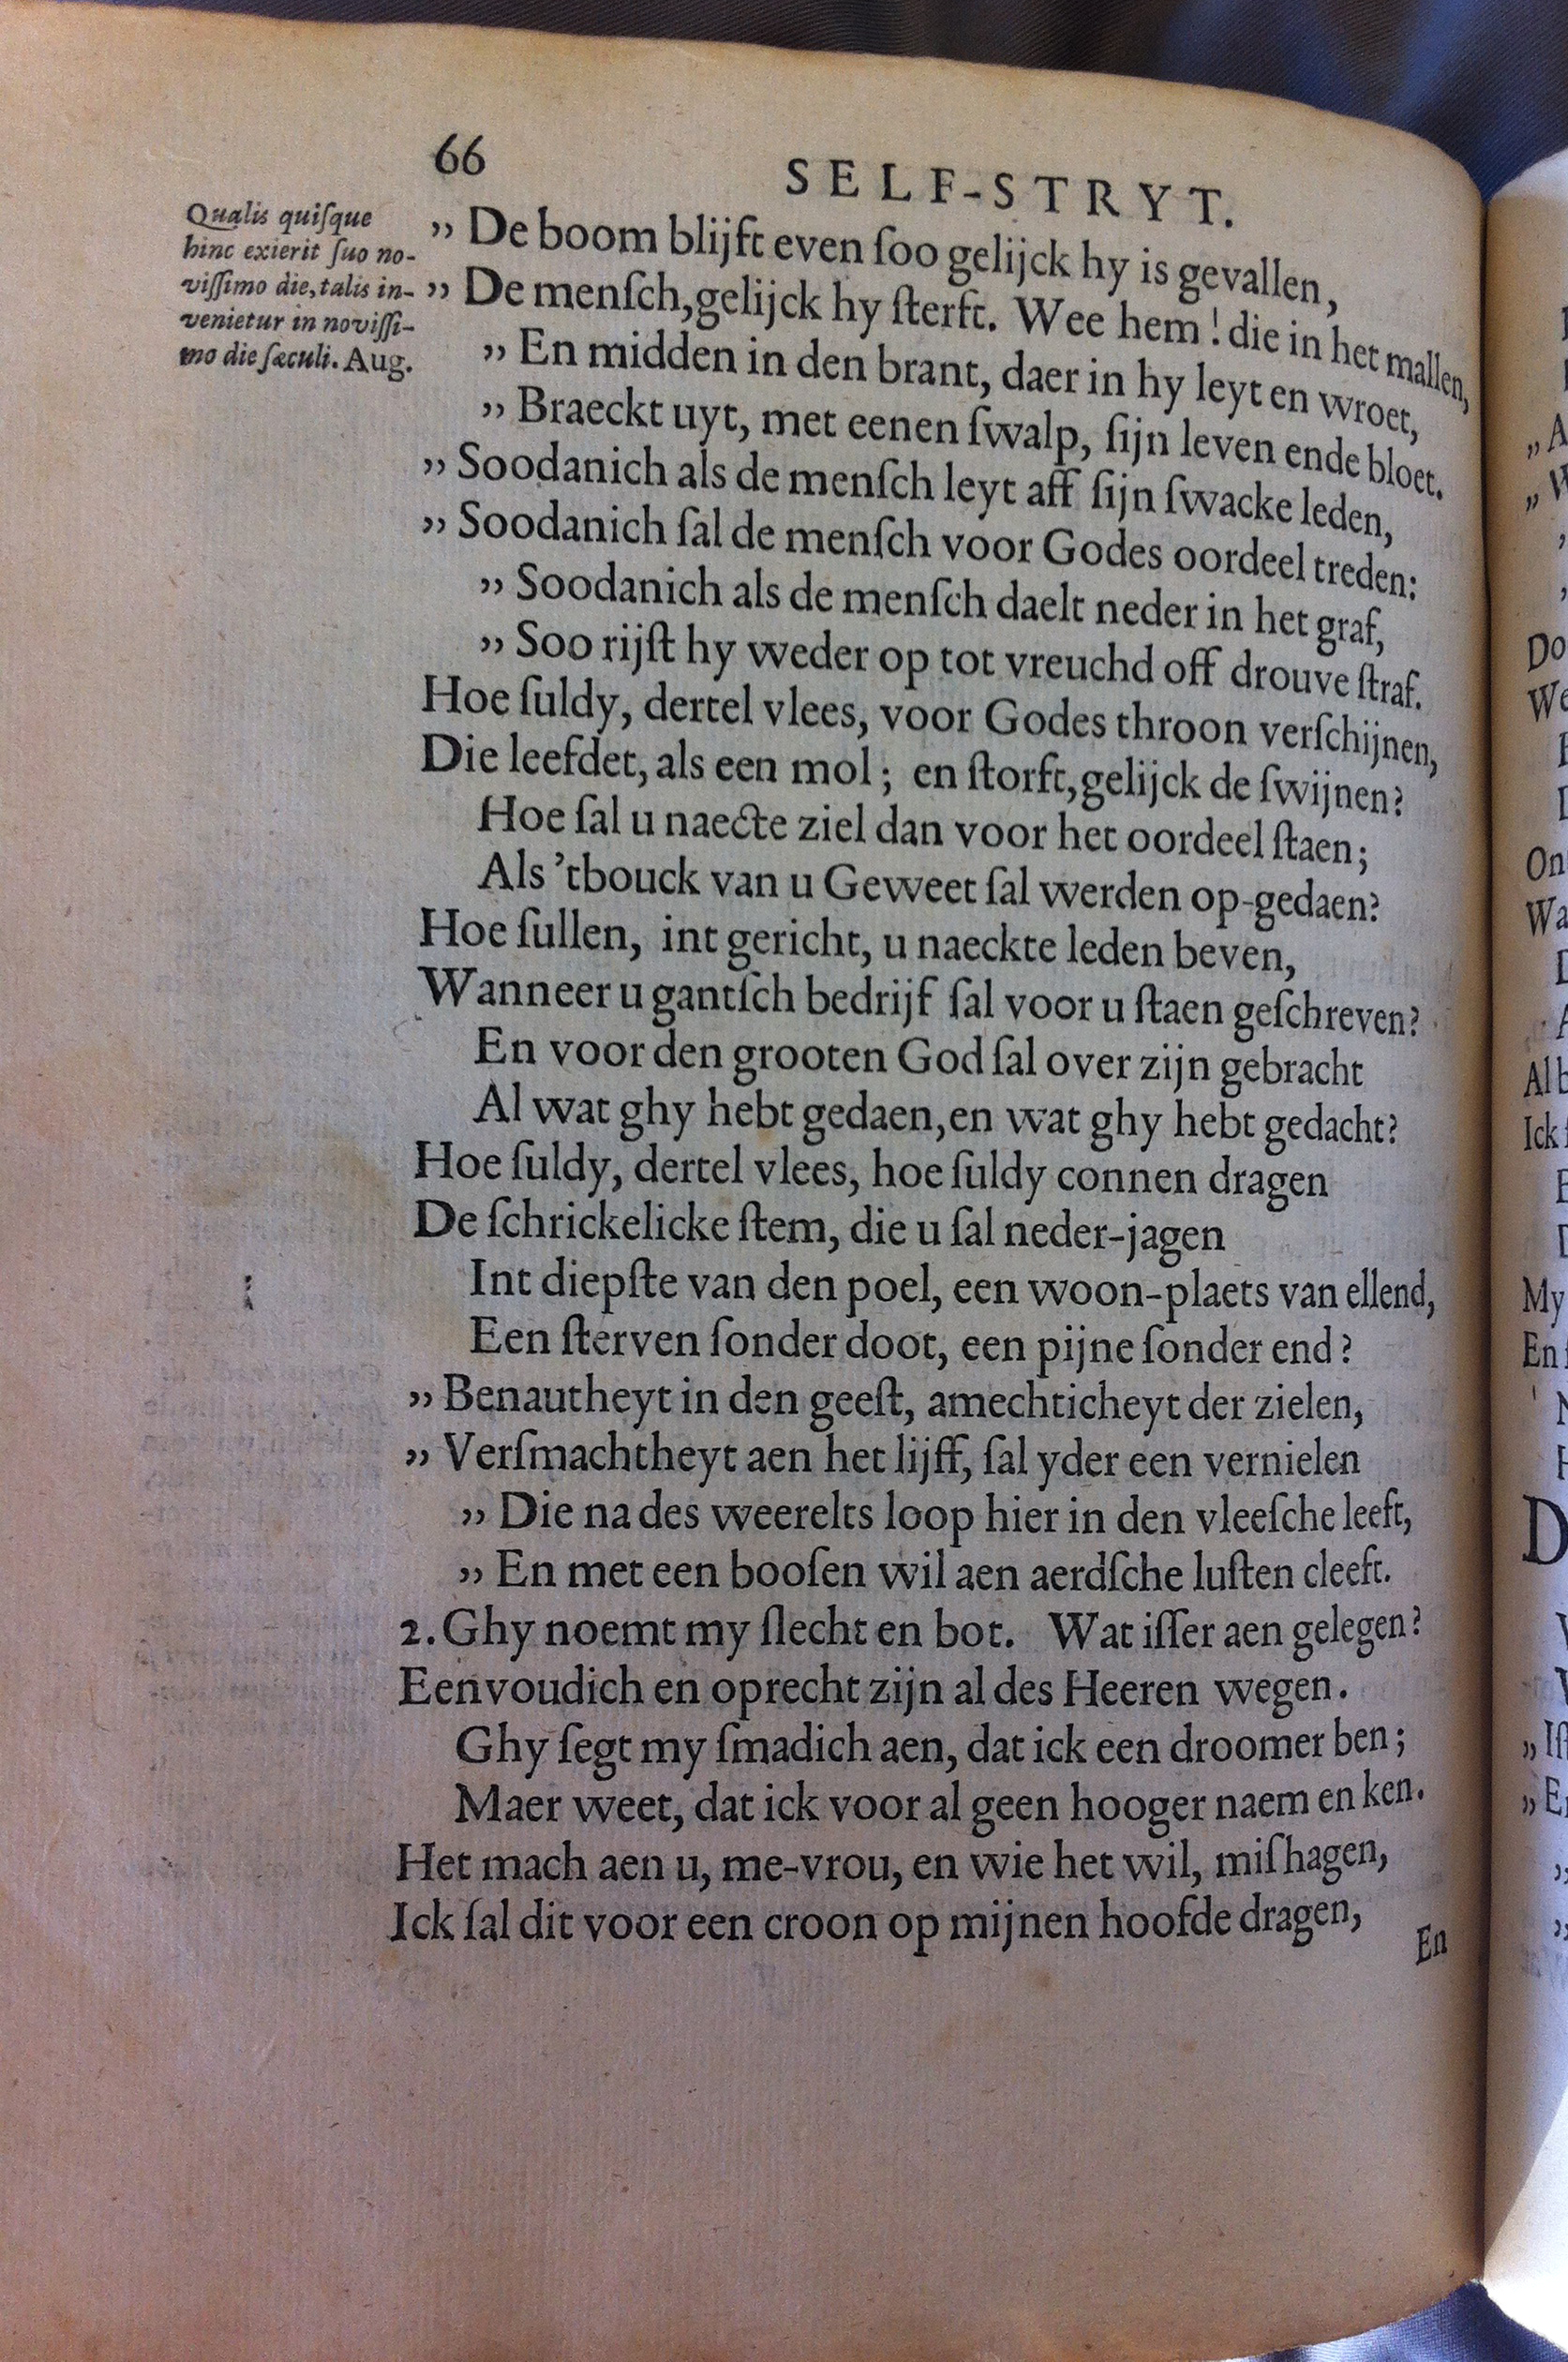 66
SELF-STRYT.
Qualis quiſque
hinc exierit ſuo no-
viſſimo die, talis in-
venietur in noviſſi-
mo die ſæculi. Aug.
„ De boom blijft even ſoo gelijck hy is gevallen,
„ De menſch, gelijck hy ſterft. Wee hem! die in het mallen,
„ En midden in den brant, daer in hy leyt en wroet,
„ Braeckt uyt, met eenen ſwalp, ſijn leven ende bloet.
„ Soodanich als de menſch leyt aff ſijn ſwacke leden,
„ Soodanich ſal de menſch voor Godes oordeel treden:
„ Soodanich als de menſch daelt neder in het graf,
„ Soo rijſt hy weder op tot vreuchd off drouve ſtraf.
Hoe ſuldy, dertel vlees, voor Godes throon verſchijnen,
Die leefdet, als een mol; en ſtorft, gelijck de ſwijnen?
Hoe ſal u naecte ziel dan voor het oordeel ſtaen;
Als ’tbouck van u Geweet ſal werden op-gedaen?
Hoe ſullen, int gericht, u naeckte leden beven,
Wanneer u gantſch bedrijf ſal voor u ſtaen geſchreven?
En voor den grooten God ſal over zijn gebracht
Al wat ghy hebt gedaen, en wat ghy hebt gedacht?
Hoe ſuldy, dertel vlees, hoe ſuldy connen dragen
De ſchrickelicke ſtem, die u ſal neder-jagen
Int diepſte van den poel, een woon-plaets van ellend,
Een ſterven ſonder doot, een pijne ſonder end?
„ Benautheyt in den geeſt, amechticheyt der zielen,
„ Verſmachtheyt aen het lijff, ſal yder een vernielen
„ Die na des weerelts loop hier in den vleeſche leeft,
„ En met een booſen wil aen aerdſche luſten cleeft.
2. Ghy noemt my ſlecht en bot. Wat iſſer aen gelegen?
Eenvoudich en oprecht zijn al des Heeren wegen.
Ghy ſegt my ſmadich aen, dat ick een droomer ben;
Maer weet, dat ick voor al geen hooger naem en ken.
Het mach aen u, me-vrou, en wie het wil, miſhagen,
Ick ſal dit voor een croon op mijnen hoofde dragen,
En